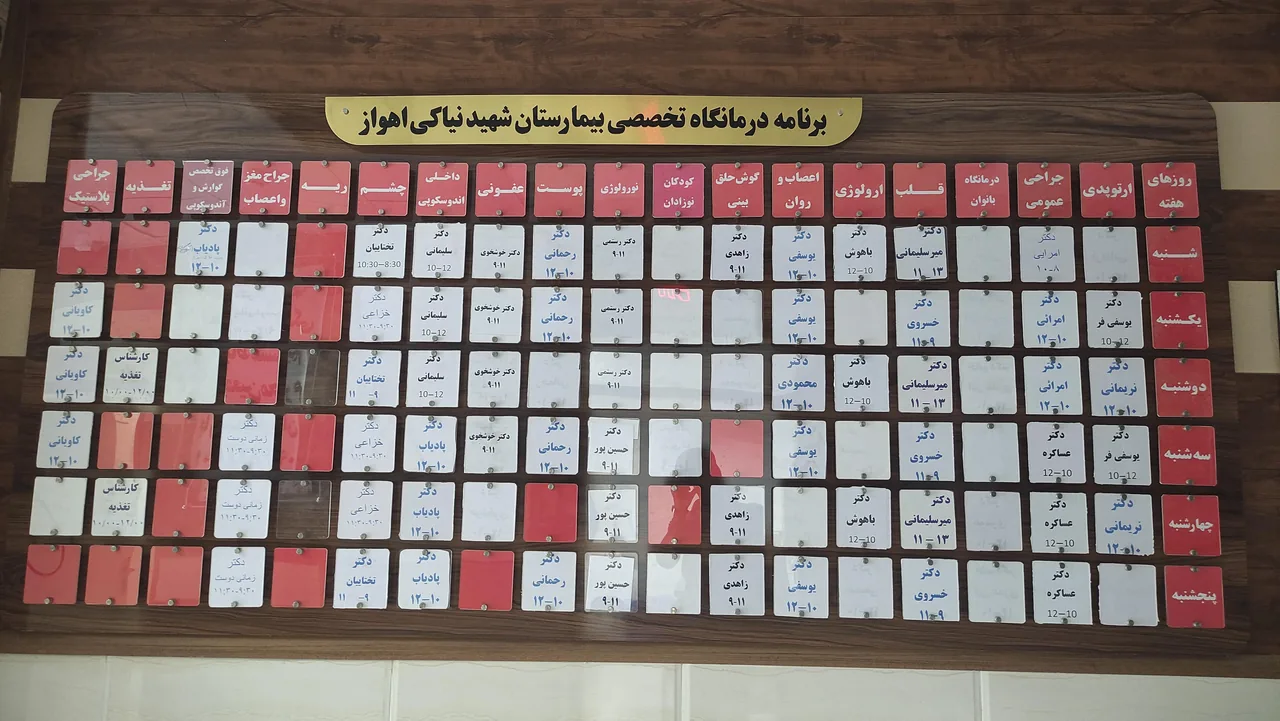 برنامه درمانگاه تخصصی بیمارستان شهید نیاکی اهواز
روزهای هفته
ارتوپدی
جراحی عمومی
درمانگاه بانوان
قلب
ارولوژی
اعصاب و روان
گوش حلق بینی
کودکان نوزادان
نورولوژی
پوست
عفونی
داخلی اندوسکوپی
چشم
ریه
جراح مغز واعصاب
فوق تخصص گوارش و آندوسکوپی
تغذیه
جراحی پلاستیک
شنبه
دکتر امرایی ۸-۱۰
دکتر میرسلیمانی ۱۱-۱۳
دکتر باهوش 10-12
دکتر یوسفی ۱۰-۱۲
دکتر زاهدی ۹-۱۱
دکتر رستمی ۹-۱۱
دکتر رحمانی ۱۰-۱۲
دکتر خوشخوی ۹-۱۱
دکتر سلیمانی 10-12
دکتر تختاییان 8:30-10:30
دکتر پادیاب ۱۰-۱۲
یکشنبه
دکتر یوسفی فر 10-12
دکتر امرائی ۱۰-۱۲
دکتر خسروی ۹-۱۱
دکتر یوسفی ۱۰-۱۲
دکتر رستمی ۹-۱۱
دکتر رحمانی ۱۰-۱۲
دکتر خوشخوی ۹-۱۱
دکتر سلیمانی 10-12
دکتر خزاعی ۹:۳۰-۱۱:۳۰
دکتر کاویانی ۱۰-۱۲
دوشنبه
دکتر نریمانی ۱۰-۱۲
دکتر امرائی ۱۰-۱۲
دکتر میرسلیمانی ۱۱-۱۳
دکتر باهوش 10-12
دکتر محمودی ۱۰-۱۲
دکتر رستمی ۹-۱۱
دکتر خوشخوی ۹-۱۱
دکتر سلیمانی 10-12
دکتر تختاییان ۹-۱۱
کارشناس تغذیه ۱۰/۰۰-۱۲/۰۰
دکتر کاویانی ۱۰-۱۲
سه شنبه
دکتر یوسفی فر 10-12
دکتر عساکره 10-12
دکتر خسروی ۹-۱۱
دکتر یوسفی ۱۰-۱۲
دکتر حسین پور ۹-۱۱
دکتر رحمانی ۱۰-۱۲
دکتر خوشخوی ۹-۱۱
دکتر پادیاب ۱۰-۱۲
دکتر خزاعی ۹:۳۰-۱۱:۳۰
دکتر زمانی دوست ۹:۳۰-۱۱:۳۰
دکتر کاویانی ۱۰-۱۲
چهارشنبه
دکتر نریمانی ۱۰-۱۲
دکتر عساکره 10-12
دکتر میرسلیمانی ۱۱-۱۳
دکتر باهوش 10-12
دکتر زاهدی ۹-۱۱
دکتر حسین پور ۹-۱۱
دکتر پادیاب ۱۰-۱۲
دکتر خزاعی ۹:۳۰-۱۱:۳۰
دکتر زمانی دوست ۹:۳۰-۱۱:۳۰
کارشناس تغذیه ۱۰/۰۰-۱۲/۰۰
پنجشنبه
دکتر عساکره 10-12
دکتر خسروی ۹-۱۱
دکتر یوسفی ۱۰-۱۲
دکتر زاهدی ۹-۱۱
دکتر حسین پور ۹-۱۱
دکتر رحمانی ۱۰-۱۲
دکتر پادیاب ۱۰-۱۲
دکتر تختاییان ۹-۱۱
دکتر زمانی دوست ۹:۳۰-۱۱:۳۰